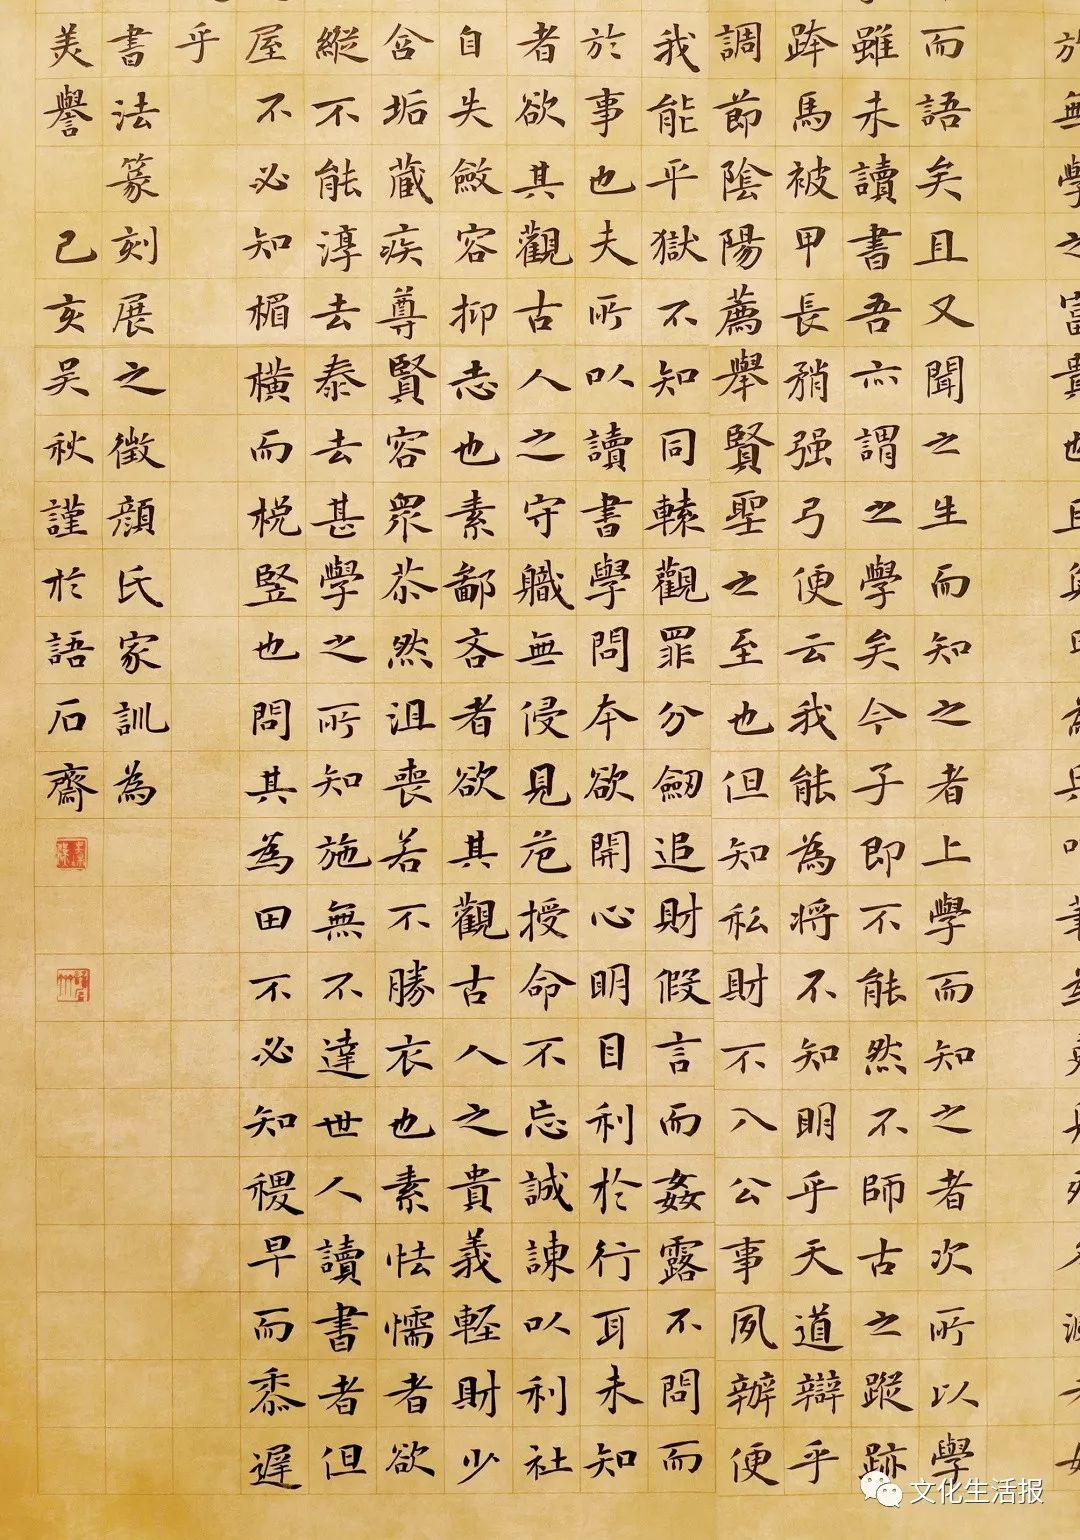 於無學之富貴也且負
而語矣且又聞之生而知之者上學而知之者次所以學
雖未讀書吾亦謂之學矣今子即不能然不師古之蹤跡
跨馬被甲長矟强弓便云我能為將不知明乎天道辯乎
調節陰陽薦舉賢聖之至也但知私財不入公事夙辦便
我能平獄不知同轅觀罪分劒追財假言而姦露不問而
於事也夫所以讀書學問本欲開心明目利於行耳未知
者欲其觀古人之守職無侵見危授命不忘誠諫以利社
自失斂容抑志也素鄙吝者欲其觀古人之貴義輕財少
含垢藏疾尊賢容衆苶然沮喪若不勝衣也素怯懦者欲
縱不能淳去泰去甚學之所知施無不達世人讀書者但
屋不必知楣橫而棁竪也問其為田不必知稷早而黍遲
乎
書法篆刻展之徵顔氏家訓為
美譽 己亥吴秋謹於語石齋
文化生活报